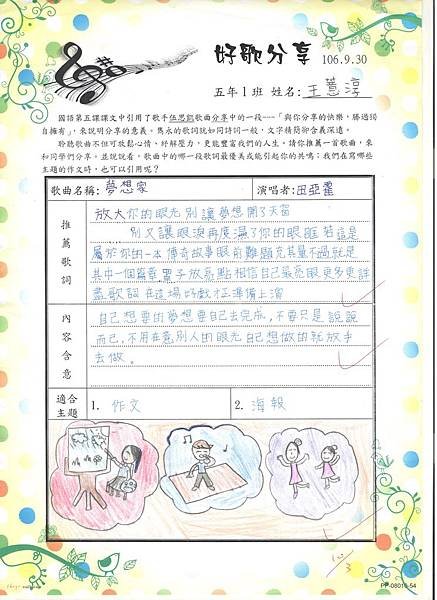 好歌分享 106.9.30
五年1班 姓名:王薏淳
國語第五課課文中引用了歌手伍思凱歌曲分享中的一段──「與你分享的快樂,勝過獨
自擁有」,來說明分享的意義。雋永的歌詞就如同詩詞一般,文字精簡卻含義深遠。
聆聽歌曲不但可放鬆心情、紓解壓力,更能豐富我們的人生。請你推薦一首歌曲,來
和同學們分享。並說說看,歌曲中的哪一段歌詞最優美或能引起你的共鳴;我們在寫哪些
主題的作文時,也可以引用呢?
歌曲名稱:夢想家 演唱者:田亞霍
推薦歌詞
放大你的眼光別讓夢想開了天窗
別又讓眼淚再度濕了你的眼眶 若這是
屬於你的一本傳奇故事眼前難題充其量不過就是
其中一個篇章 膽子放亮點相信自己最亮眼更多更詳
盡歌設 在這場好戲才正準備上演
內容含意
自己想要的夢想要自己去完成,不要只是說說
而已,不用在意別人的眼光 自己想做的就放手
去做。
適合主題
1. 作文 2. 海報
PP-08010-54